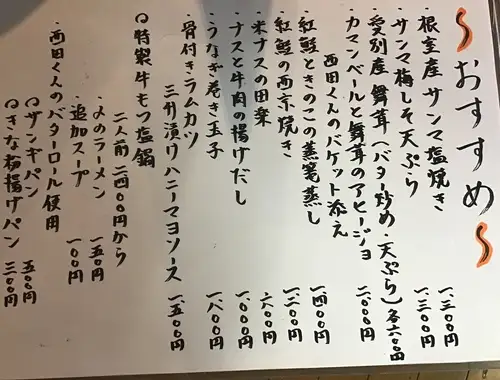 おすすめ
・根室産サンマ塩焼き 一、三〇〇円
・サンマ梅しそ天ぷら 一、三〇〇円
・愛別産舞茸(バター炒め・天ぷら)各六〇〇円
・カマンベールと舞茸のアヒージョ 二、〇〇〇円
西田くんのバゲット添え
・紅鮭ときのこの蒸篭蒸し 一、四〇〇円
・紅鮭の西京焼き 一、二〇〇円
・米ナスの田楽 六〇〇円
・ナスと牛肉の揚げだし 一、〇〇〇円
・うなぎ巻き玉子 一、八〇〇円
・骨付きラムカツ
三升漬けハニーマヨソース 一、五〇〇円
◎特製牛もつ塩鍋
二人前 二四〇〇円から
〆のラーメン 一五〇円
・追加スープ 一〇〇円
・西田くんのバターロール使用
◎ザンギパン 五〇〇円
◎きなこ揚げパン 三〇〇円